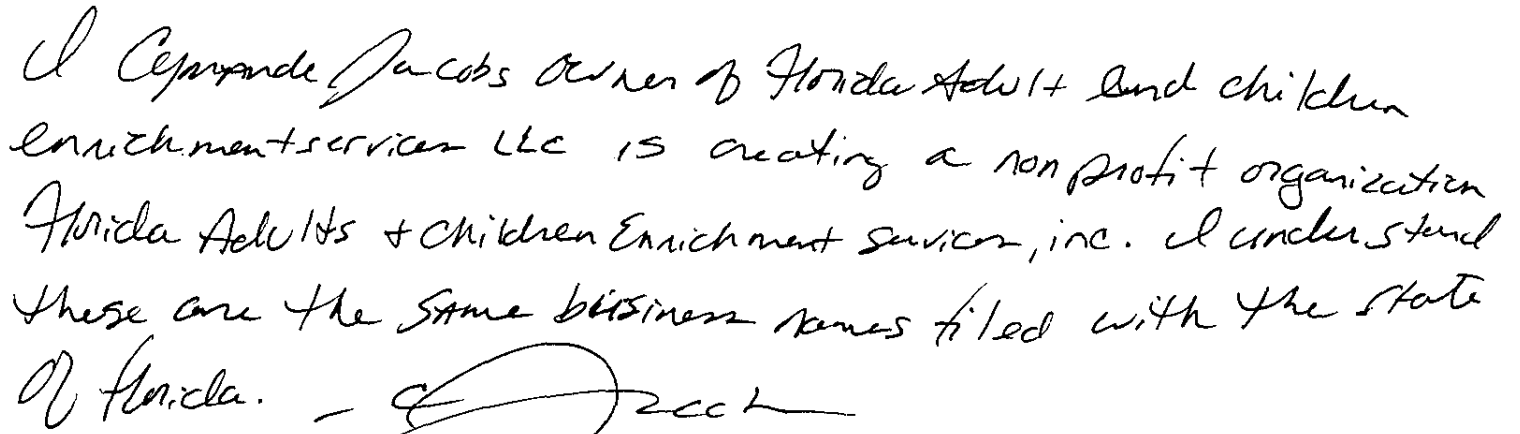 I Jacobs owner of Florida Adult and children
enrichment services LLC is creating a non profit organization
Florida Adults + Children Enrichment Services, inc. I understand
these are the same business names filed with the state
of Florida. -